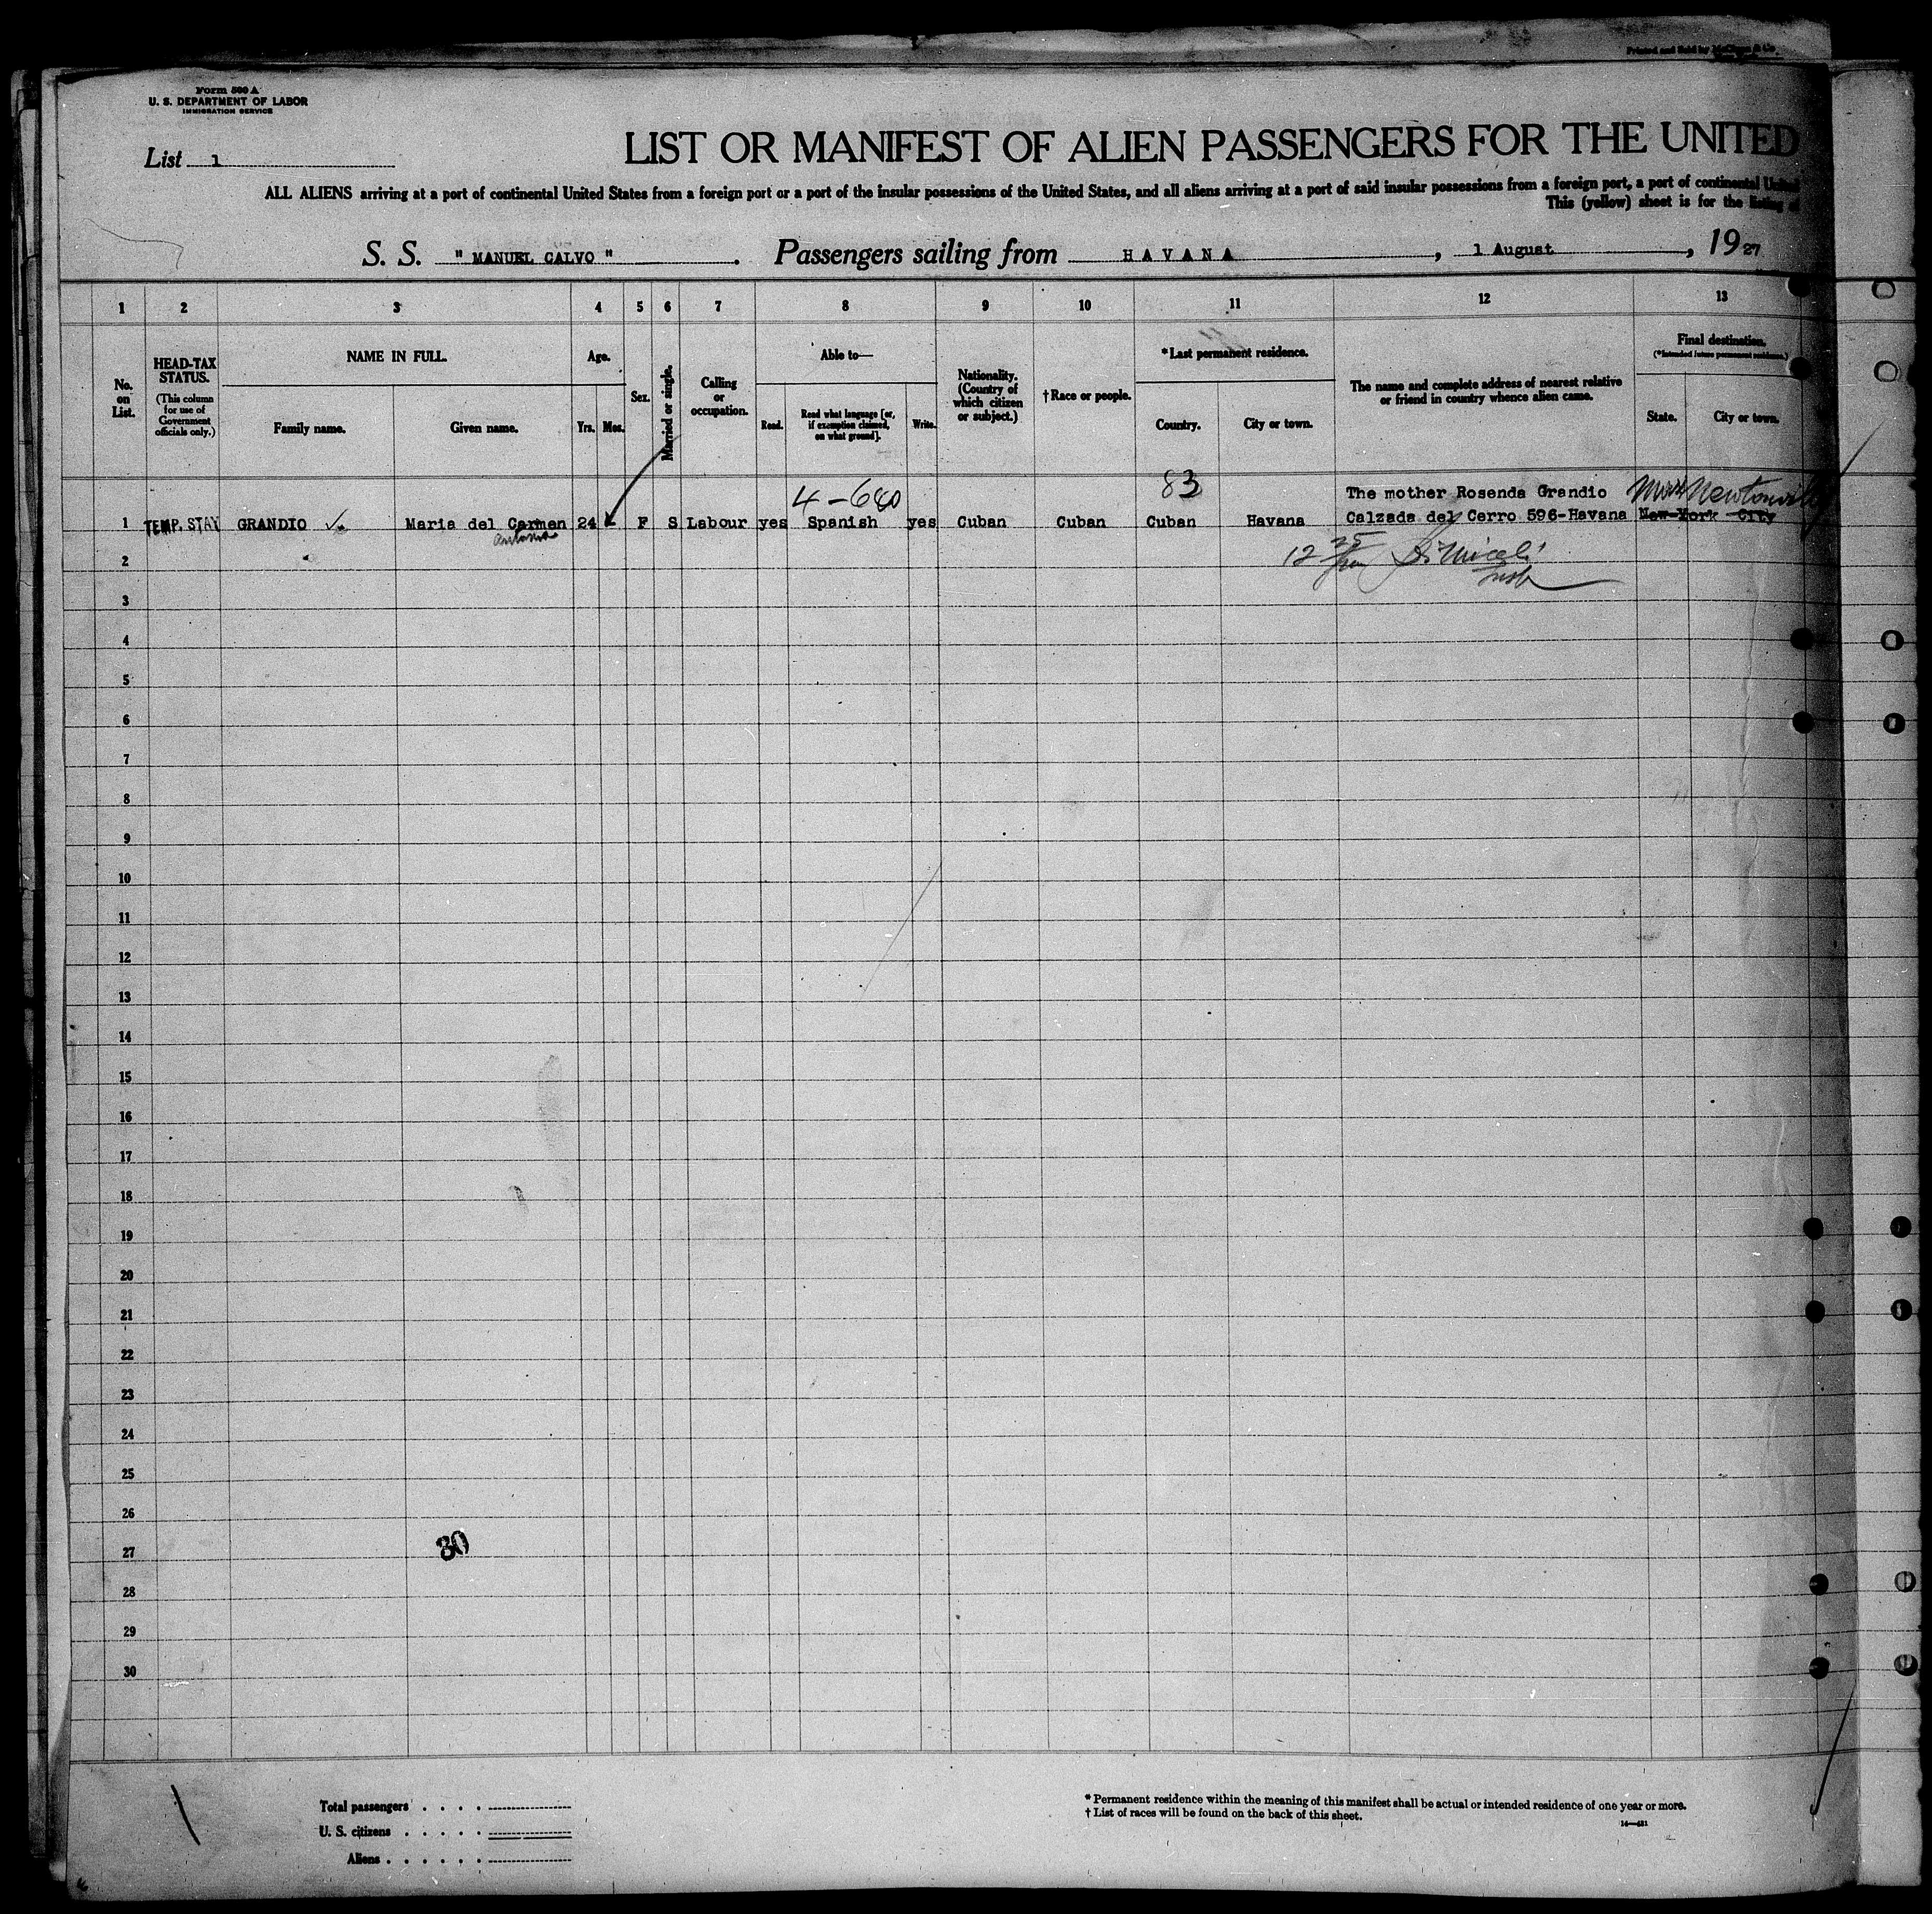 Printed and Sold by
Form 500 A
U. S. DEPARTMENT OF LABOR
IMMIGRATION SERVICE
List 1
LIST OR MANIFEST OF ALIEN PASSENGERS FOR THE UNITED
ALL ALIENS arriving at a port of continental United States from a foreign port or a port of the insular possessions of the United States, and all aliens arriving at a port of said insular possessions from a foreign port, a port of continental United
This (yellow) sheet is for the listing of
S. S. " MANUEL CALVO " . Passengers sailing from HAVANA , 1 August , 1927
1 2 3 4 5 6 7 8 9 10 11 12 13
No. on List.
HEAD-TAX STATUS.
(This column for use of Government officials only.)
NAME IN FULL.
Family name. Given name.
Age.
Yrs. Mos.
Sex.
Married or single.
Calling or occupation.
Able to—
Read. Read what language [or, if exemption claimed, on what ground]. Write.
Nationality. (Country of which citizen or subject.)
†Race or people.
*Last permanent residence.
Country. City or town.
The name and complete address of nearest relative or friend in country whence alien came.
Final destination.
(*Intended future permanent residence.)
State. City or town.
4-680 83 The mother Rosenda Grandio Mass Newtonville
1 TEMP. STAY GRANDIO Maria del Carmen 24 F S Labour yes Spanish yes Cuban Cuban Cuban Havana Calzada del Cerro 596-Havana New York City
Antonia
12 25
2
3
4
5
6
7
8
9
10
11
12
13
14
15
16
17
18
19
20
21
22
23
24
25
26
27
80
28
29
30
Total passengers . . . .
U. S. citizens . . . . .
Aliens . . . . . .
* Permanent residence within the meaning of this manifest shall be actual or intended residence of one year or more.
† List of races will be found on the back of this sheet.
14—481